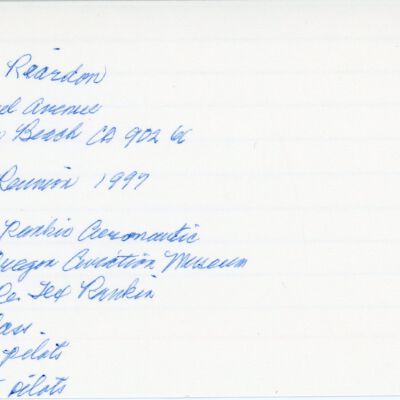 Reardon
Avenue
Beach CA 902
Reunion 1997
Rankin Aeronautic
Oregon Aviation Museum
Re. Tex Rankin
pilots
pilots